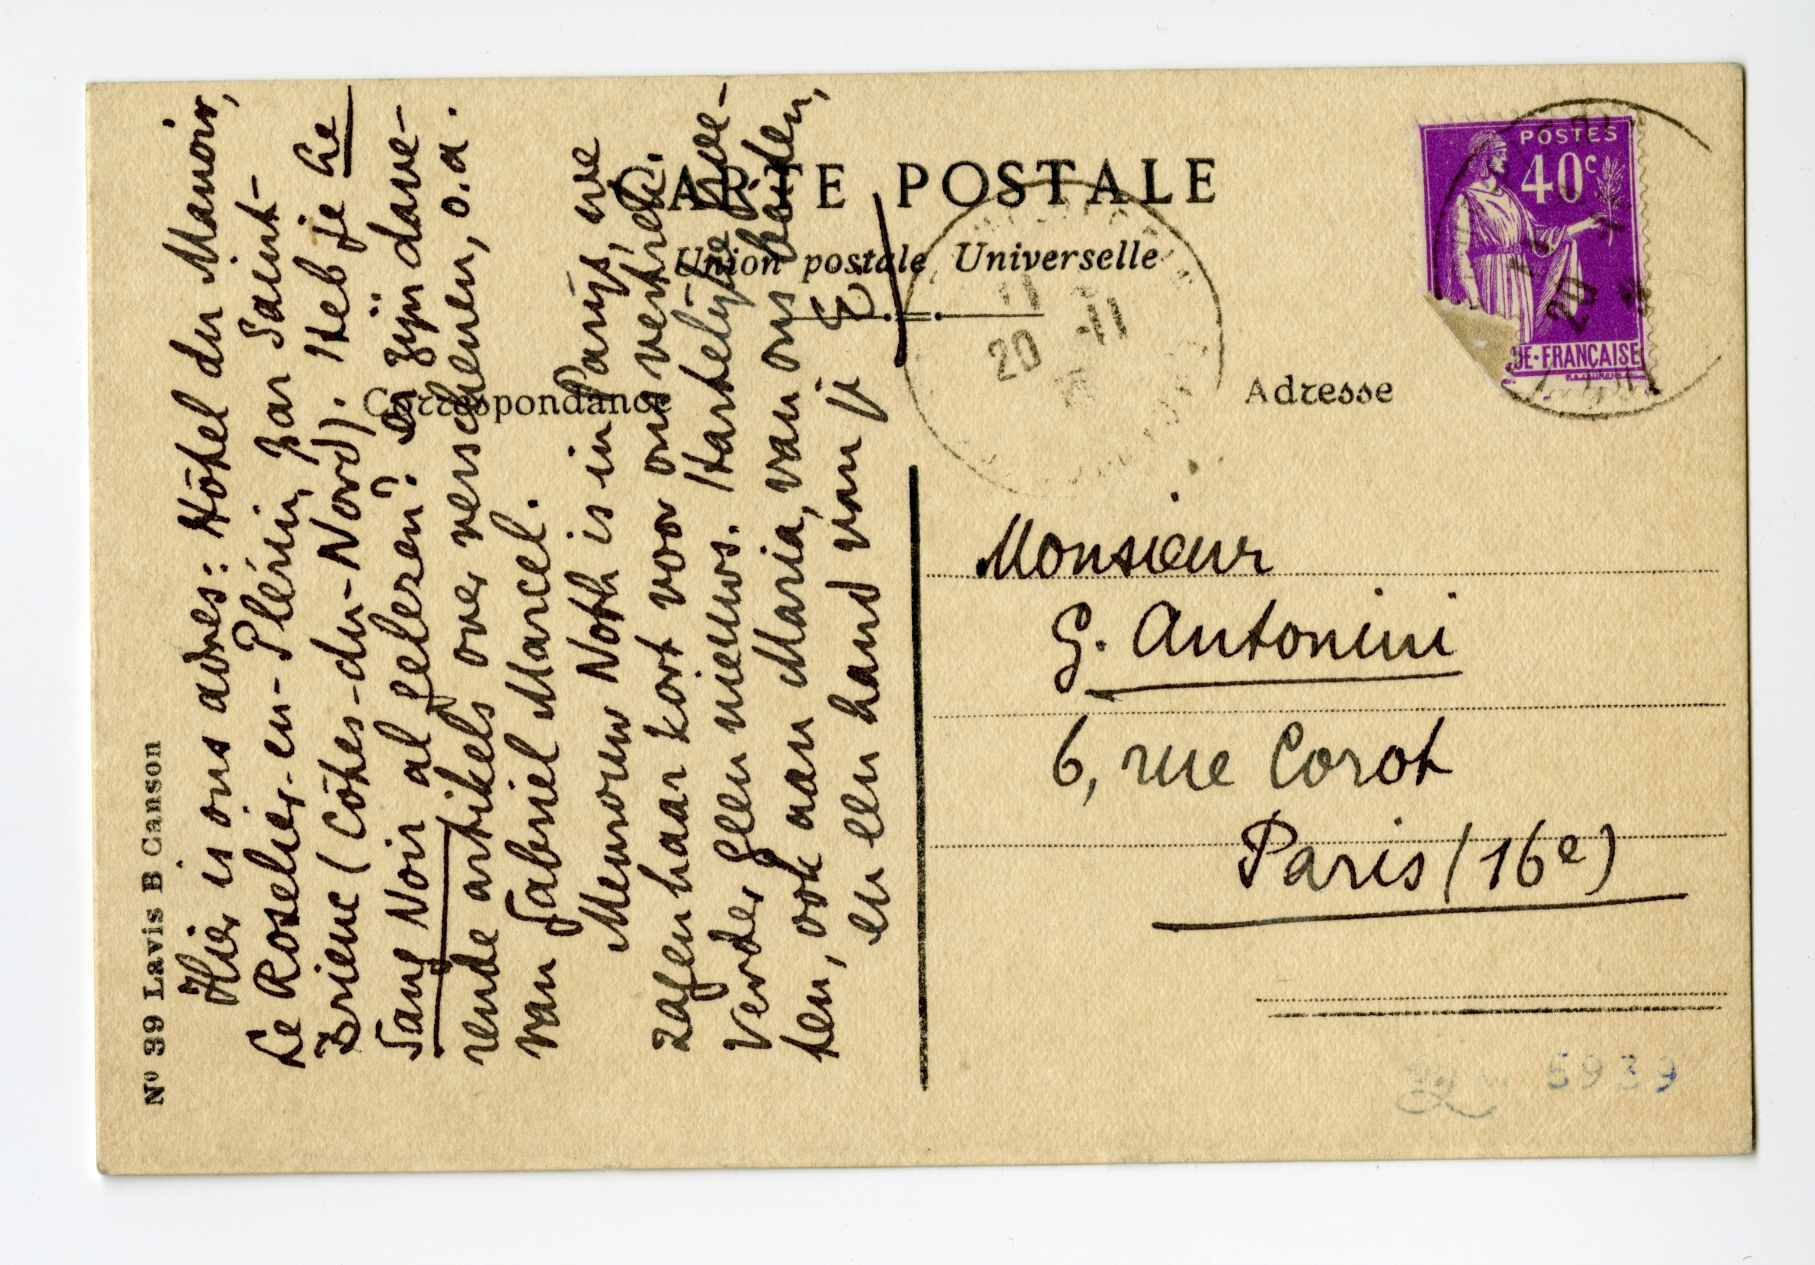 CARTE POSTALE
Union postale Universelle
Correspondance
Adresse
POSTES
40c
UE-FRANÇAISE
20
11
20
Nº 39 Lavis B Canson
Hier is ons adres: Hôtel du Manoir,
Le Roselier-en-Plérin, par Saint-
Brieuc (Côtes-du-Nord). Heb je Le
Sang Noir al gelezen? Er zijn dave-
rende artikels over verschenen, o.a.
van Gabriel Marcel.
Mevrouw Noth is in Parijs, we
zagen haar kort voor ons vertrek.
Verder geen nieuws. Hartelijke groe-
ten, ook aan Maria, van ons beiden,
en een hand van je
E.
Monsieur
G. Antonini
6, rue Corot
Paris (16e)
5939